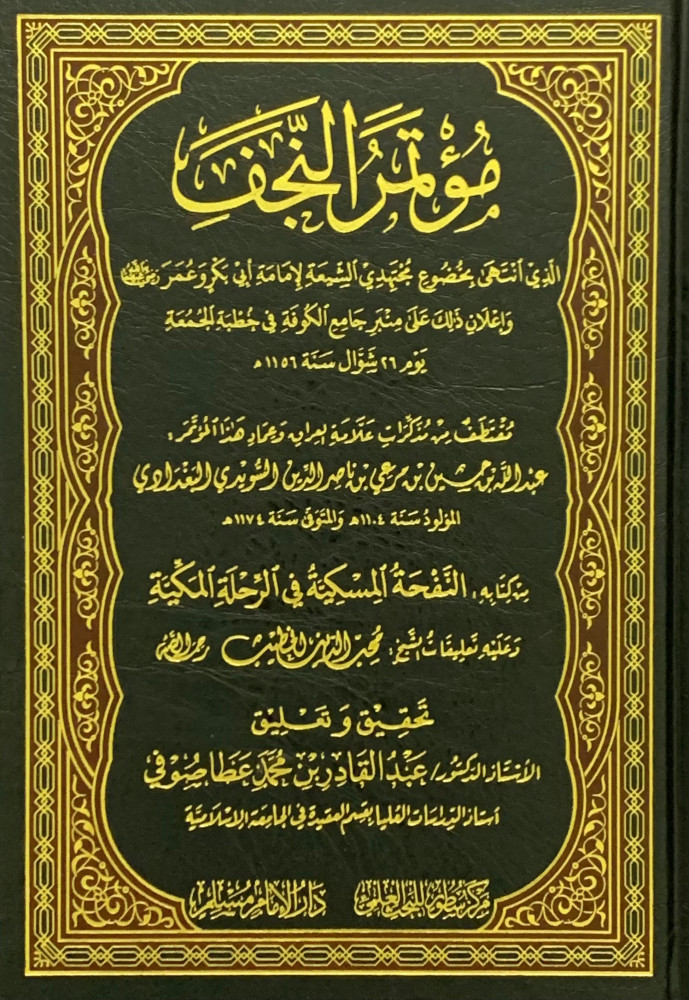 مُؤْتَمَرُ النَّجَفِ
الَّذِي انْتَهَى بِخُضُوعِ مُجْتَهِدِي الشِّيعَةِ لِإِمَامَةِ أَبِي بَكْرٍ وَعُمَرَ رضي الله عنهما
وَإِعْلَانِ ذَلِكَ عَلَى مِنْبَرِ جَامِعِ الْكُوفَةِ فِي خُطْبَةِ الْجُمُعَةِ
يَوْمَ ٢٦ شَوَّال سَنَة ١١٥٦هـ
مُقْتَطَفٌ مِنْ مُذَكِّرَاتِ عَلَّامَةِ العراق وَعِمَادِ هَذَا الْمُؤْتَمَرِ:
عبد الله بن حسين بن مرعي بن ناصر الدين السُّوَيْدي البَغْدَادي
المَوْلُودُ سَنَة ١١٠٤هـ وَالمُتَوَفَّى سَنَة ١١٧٤هـ
مِنْ كِتَابِهِ: النَّفْحَةُ الْمِسْكِيَّةُ فِي الرِّحْلَةِ الْمَكِّيَّةِ
وَعَلَيْهِ تَعْلِيقَاتُ الشَّيْخِ: محب الدين الخطيب رحمه الله
تَحْقِيق وَ تَعْلِيق
الأُسْتَاذ الدكتور/ عَبْدُ القَادِر بن مُحَمَّد عَطَا صُوفِي
أستاذ الدِّرَاسَات العُليا بقسم العقيدة في الجامعة الإسْلاميَّة
دَارُ الإِمَامِ مُسْلِم